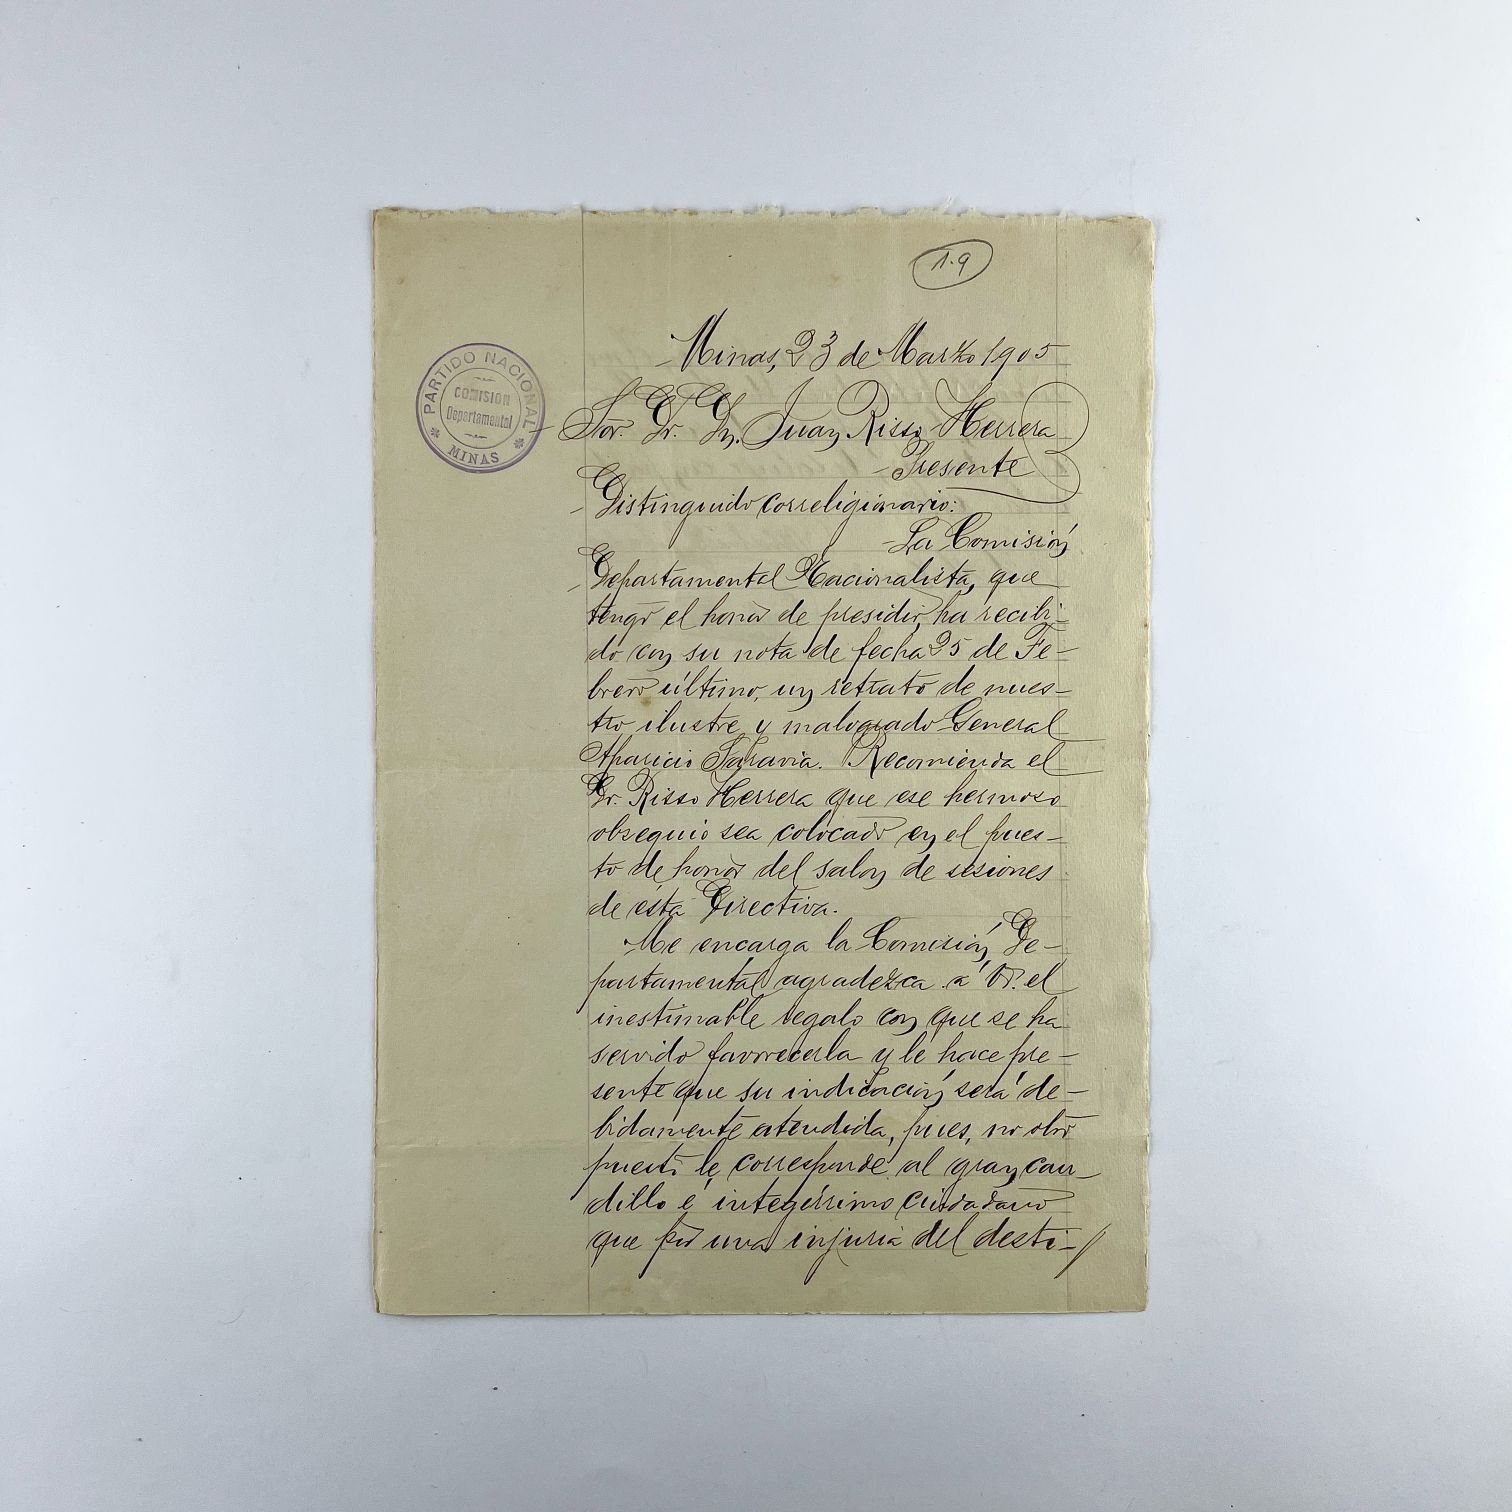 1.9
Minas, 23 de Marzo 1905
PARTIDO NACIONAL
COMISION
Departamental
MINAS
Sor. Dr. Dn. Juan Risso Herrera
Presente
Distinguido correligionario:
La Comisión
Departamental Nacionalista, que
tengo el honor de presidir, ha recibi-
do con su nota de fecha 25 de Fe-
brero último, un retrato de nues-
tro ilustre y malogrado General
Aparicio Saravia. Recomienda el
Dr. Risso Herrera que ese hermoso
obsequio sea colocado en el pues-
to de honor del salon de sesiones
de ésta Directiva.
Me encarga la Comisión De-
partamental agradezca á Vd. el
inestimable regalo con que se ha
servido favorecerla y le hace pre-
sente que su indicación será de-
bidamente atendida, pues, no otro
puesto le corresponde al gran cau-
dillo é integérrimo ciudadano
que por una injuria del desti-//